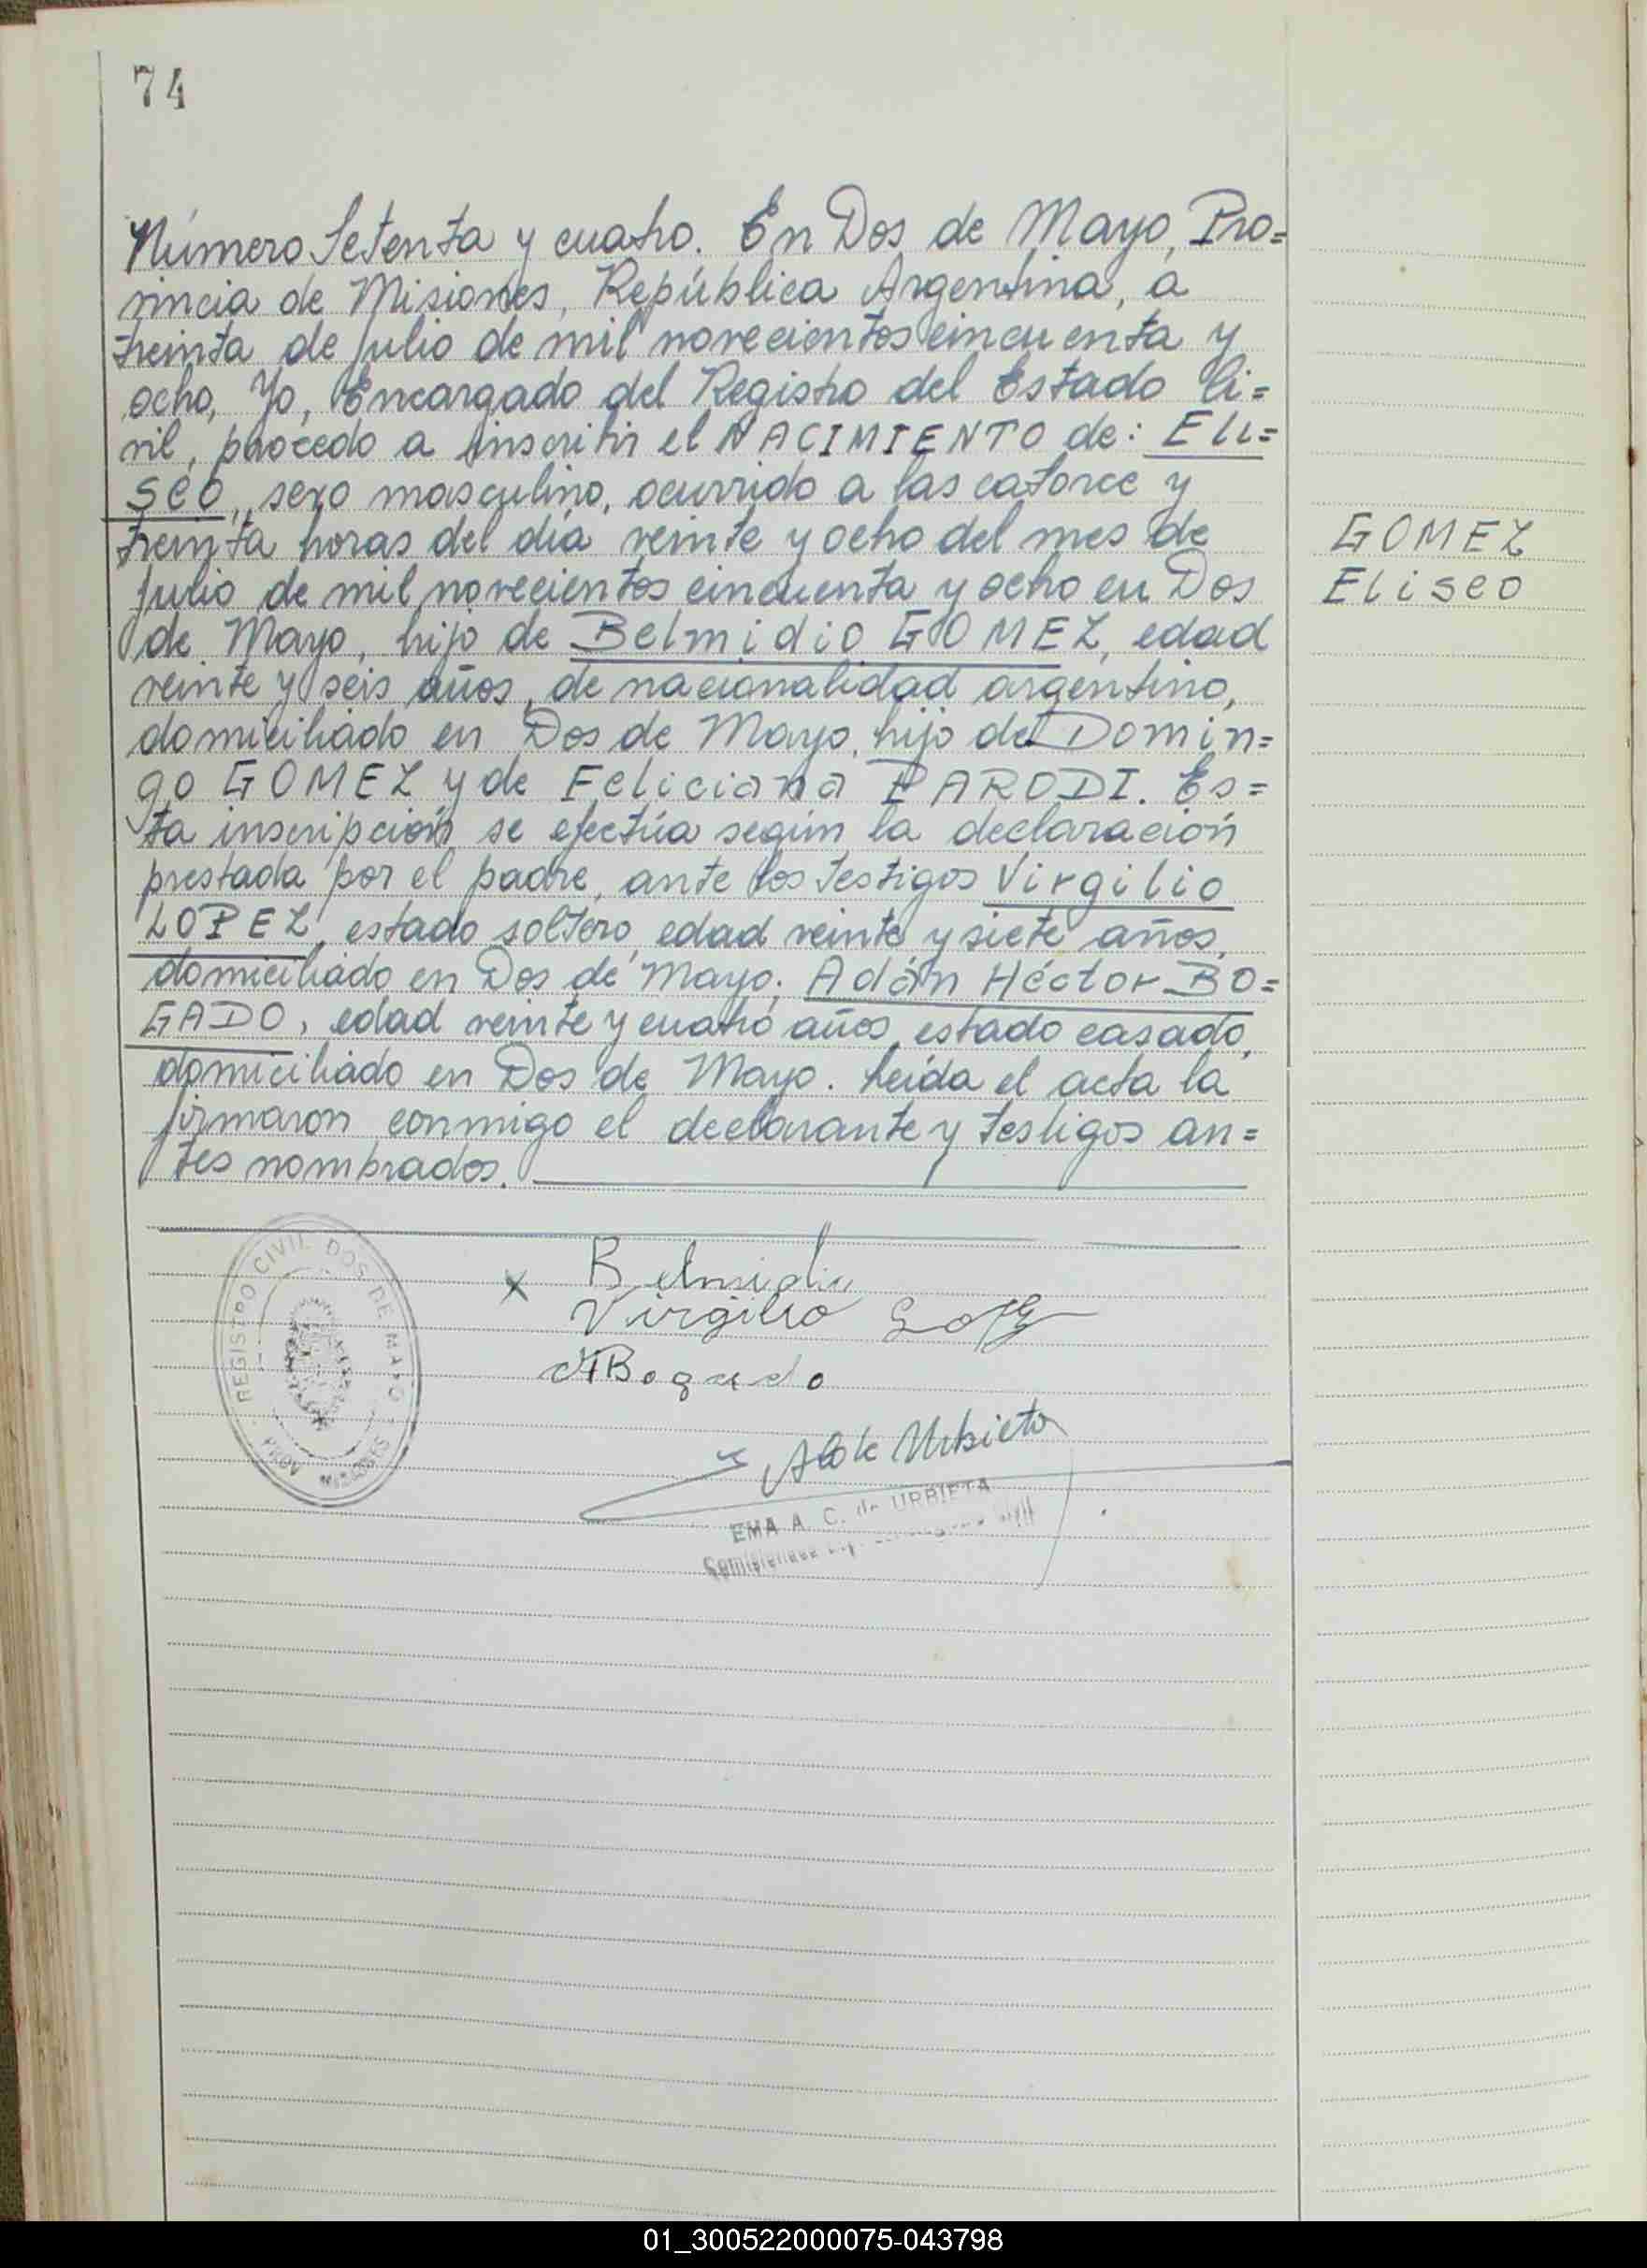 74
Número Setenta y cuatro. En Dos de Mayo, Pro=
vincia de Misiones, República Argentina, a
treinta de julio de mil novecientos cincuenta y
ocho, Yo, Encargado del Registro del Estado Ci=
vil, procedo a inscribir el NACIMIENTO de: Eli=
seo, sexo masculino, ocurrido a las catorce y
treinta horas del día veinte y ocho del mes de
GOMEZ
julio de mil novecientos cincuenta y ocho en Dos
Eliseo
de Mayo, hijo de Belmidio GOMEZ, edad
veinte y seis años, de nacionalidad argentino,
domiciliado en Dos de Mayo, hijo de Domin=
go GOMEZ y de Feliciana PARODI. Es=
ta inscripción se efectúa según la declaración
prestada por el padre, ante los testigos Virgilio
LOPEZ, estado soltero, edad veinte y siete años,
domiciliado en Dos de Mayo; Adán Héctor BO=
GADO, edad veinte y cuatro años, estado casado,
domiciliado en Dos de Mayo. Leída el acta la
firmaron conmigo el declarante y testigos an=
tes nombrados.
REGISTRO CIVIL DOS DE MAYO - PROV. MISIONES -
x Belmidio
Virgilio
Bogado
de Urbieta
EMA A. C. de URBIETA
01_300522000075-043798